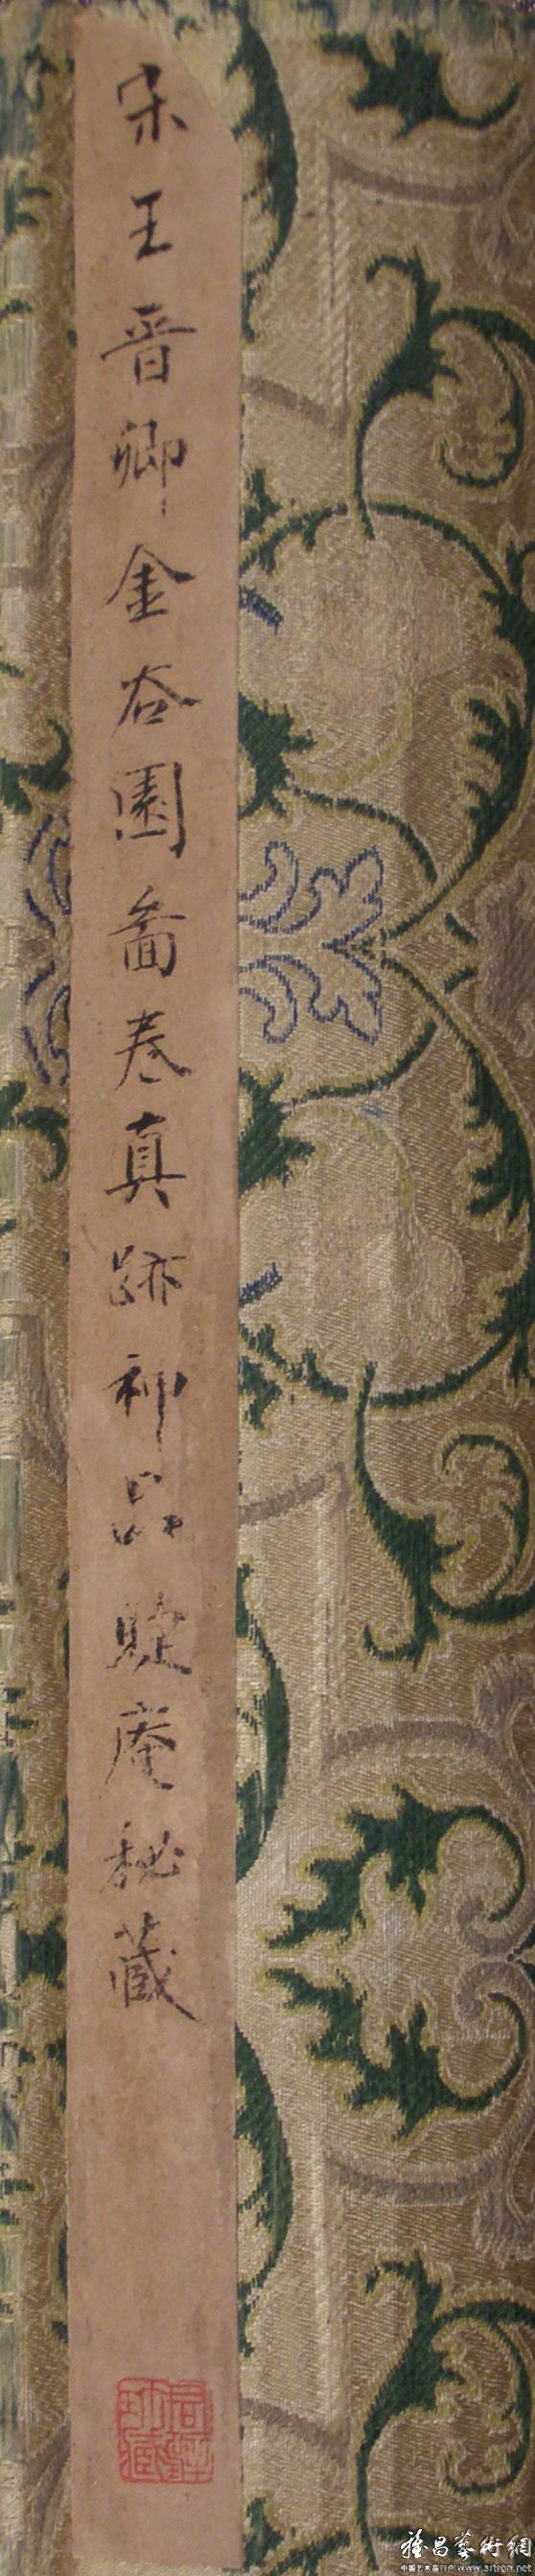 宋王晋卿金谷園啚卷真跡神品賍庵秘藏
雅昌藝術網
中国艺术品门户 www.artron.net